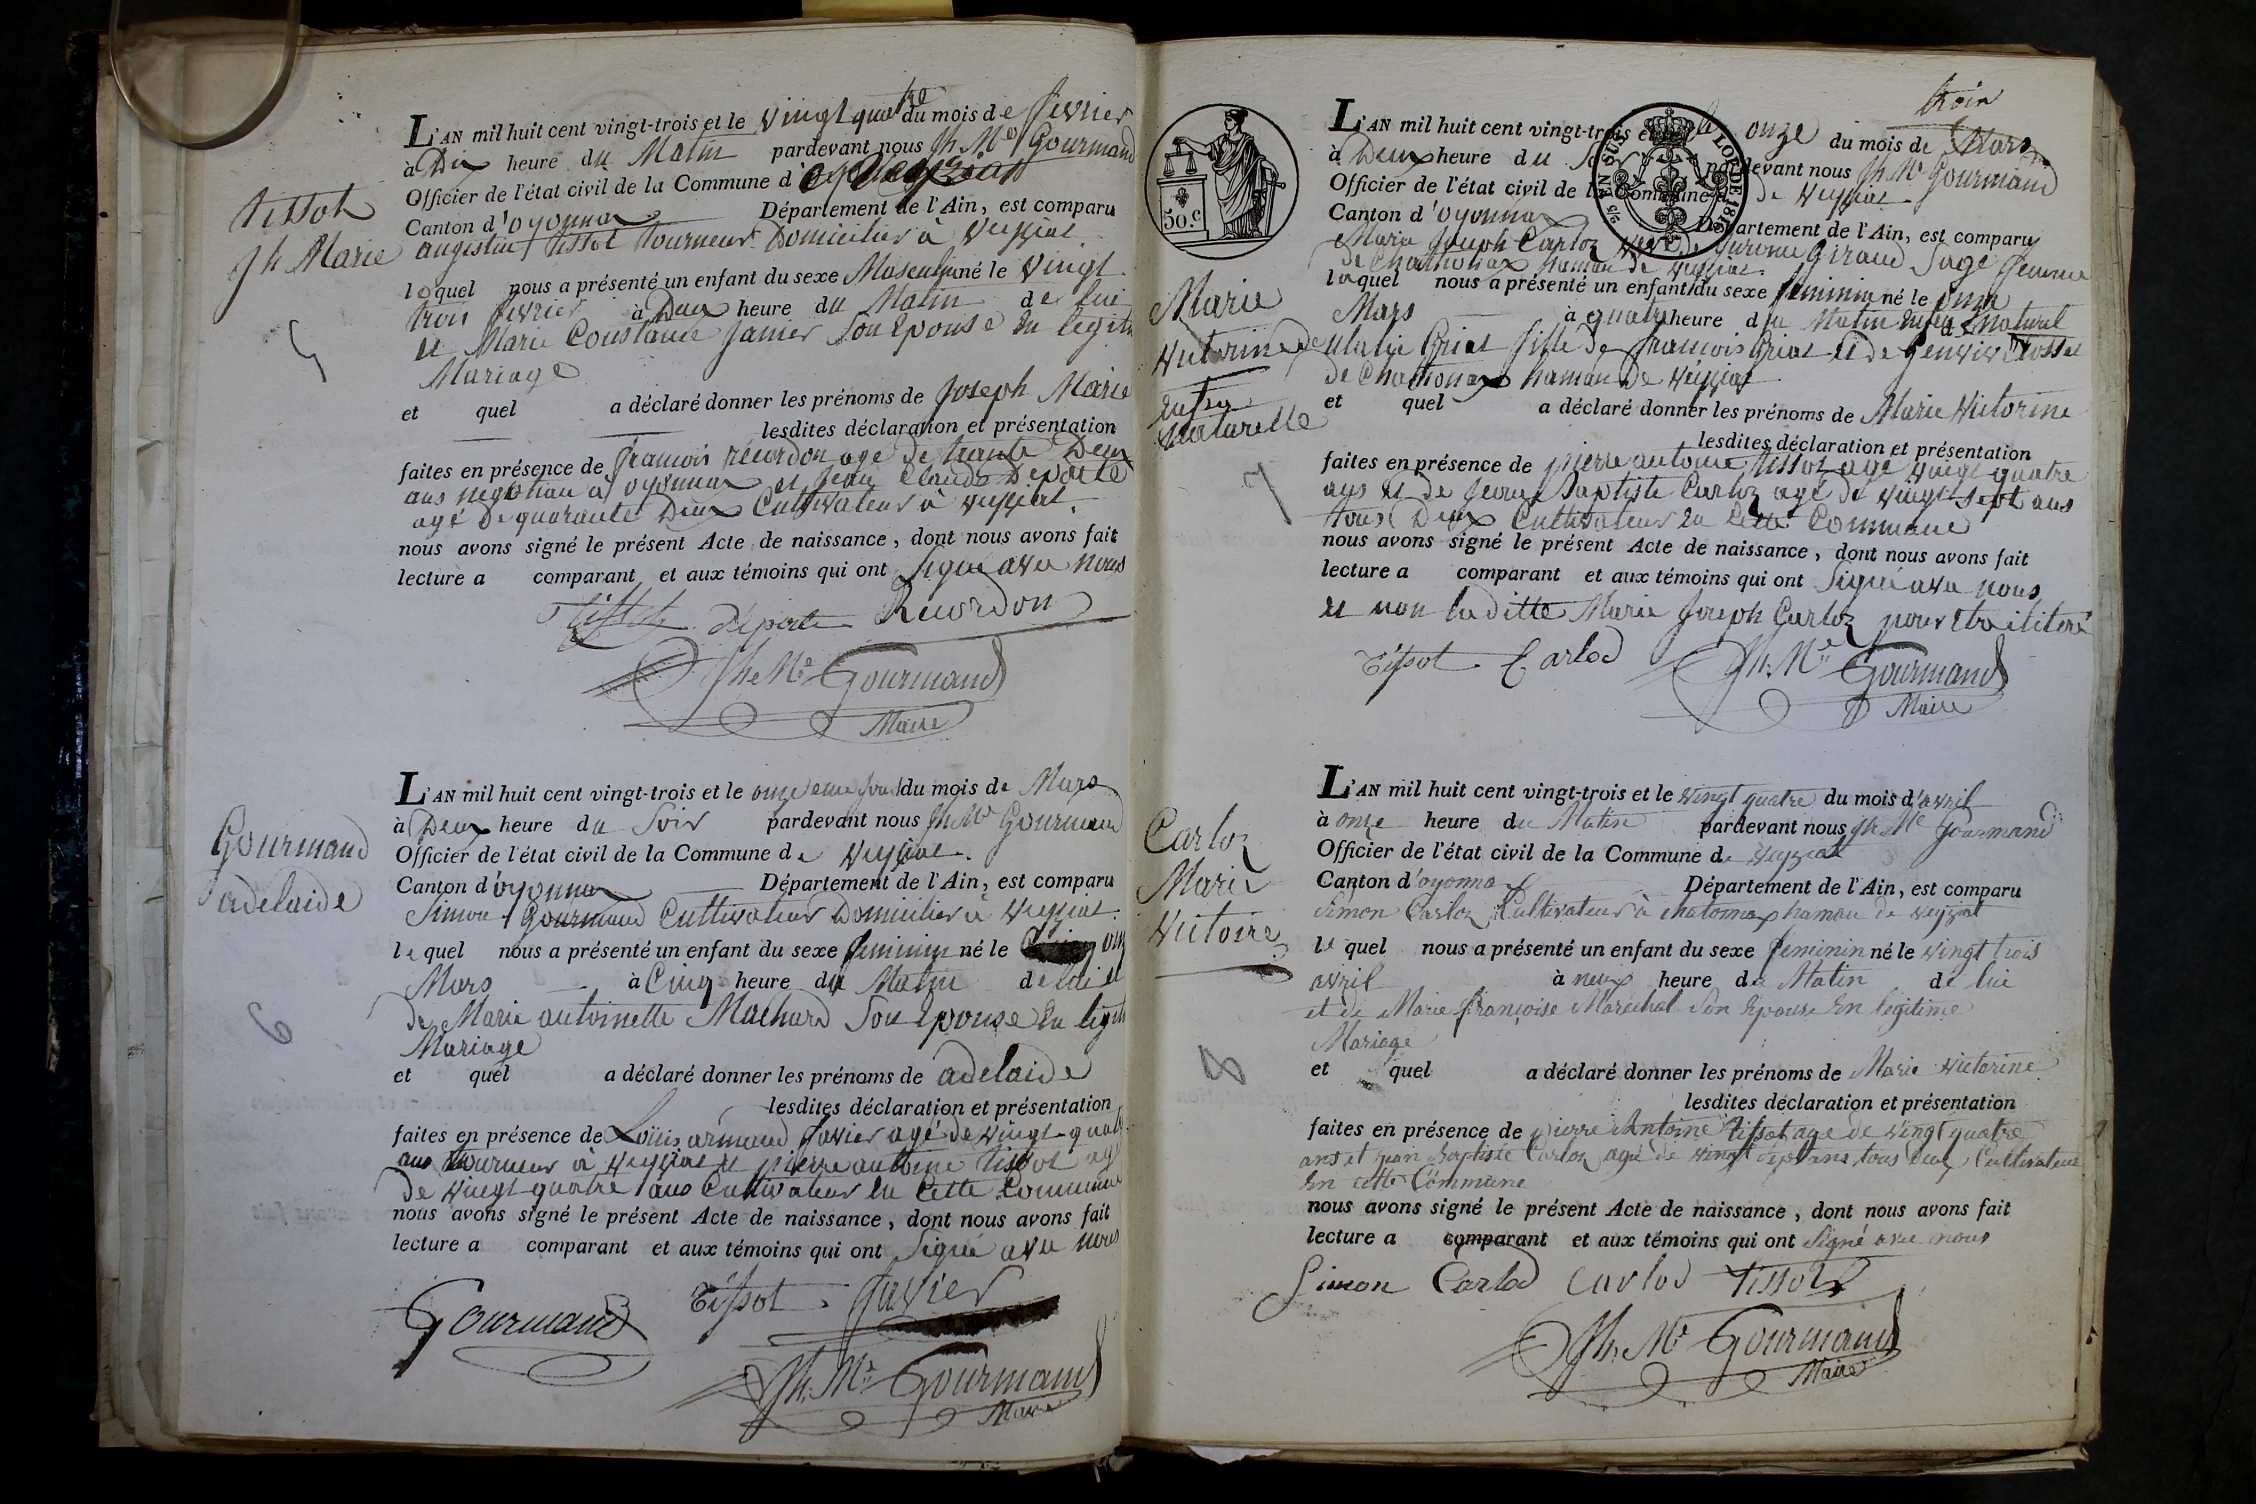 Tissot
Jh Marie
5
L'AN mil huit cent vingt-trois et le vingt quatre du mois de fevrier
à Dix heure du Matin pardevant nous Jh Me Gourmand
Officier de l'état civil de la Commune d
Canton d'oyonnax Département de l'Ain, est comparu
augustin tissot tourneur Domicilier à Veyziat.
lequel nous a présenté un enfant du sexe Masculin né le vingt
trois fevrier à Deux heure du Matin de lui
et Marie Constance Janier Son Epouse En legitime
Mariage
et quel a déclaré donner les prénoms de Joseph Marie
lesdites déclaration et présentation
faites en présence de francois récordon age de trante Deux
ans negotian a oyonnax et Jean Claude Deporte
agé De quarante Deux Cultivateur à veyziat.
nous avons signé le présent Acte de naissance, dont nous avons fait
lecture a comparant et aux témoins qui ont Signé avec nous
Tissot déporte Recordon
Jhe Me Gourmand
Maire
Gourmand
adelaide
6
L'AN mil huit cent vingt-trois et le onzieme jour du mois de Mars
à Deux heure du Soir pardevant nous Jh Me Gourmand
Officier de l'état civil de la Commune de Veyziat.
Canton d'oyonnax Département de l'Ain, est comparu
Simon Gourmand Cultivateur Domicilier à Veyziat.
lequel nous a présenté un enfant du sexe feminin né le onz
Mars à Cinq heure du Matin de lui et
de Marie antoinette Machard Son Epouse En legit
Mariage
et quel a déclaré donner les prénoms de adelaide
lesdites déclaration et présentation
faites en présence de Loüis armand Javier agé de vingt-quatr
ans tourneur à veyziat et pierre antoine tissot agé
de vingt quatre ans Cultivateur En Cette Commune
nous avons signé le présent Acte de naissance, dont nous avons fait
lecture a comparant et aux témoins qui ont Signé avec nous
Gourmand Tissot. Javier
Jh. Me Gourmand
Maire
trois
50 c.
EN SUS
LOI DE 1816
Marie
Victorine
Enfen
Naturelle
7
L'AN mil huit cent vingt-trois et le onze du mois de Mars
à Deux heure du pardevant nous Jh Me Gourmand
Officier de l'état civil de la Commune de Veyziat.
Canton d'oyonnax Département de l'Ain, est comparu
Marie Joseph Carloz Giraud Sage femme
de Chatonax hamau de veyziat.
laquel nous a présenté un enfant du sexe feminin né le onze
Mars à quatre heure du Matin Enfen Naturel
de Griot fille de francois Griot et de
de Chatonax hamau de veyziat
et quel a déclaré donner les prénoms de Marie Victorine
lesdites déclaration et présentation
faites en présence de pierre antoine tissot agé vingt quatre
ans et de Jean Baptiste Carloz agé de vingt-sept ans
tous Deux Cultivateur En Cette Commune
nous avons signé le présent Acte de naissance, dont nous avons fait
lecture a comparant et aux témoins qui ont Signé avec nous
et non la ditte Marie Joseph Carloz pour Etre ilitéré
Tissot. Carlod Jh. Me Gourmand
Maire
Carloz
Marie
Victoire
8
L'AN mil huit cent vingt-trois et le vingt quatre du mois d'avril
à onze heure du Matin pardevant nous Jh Me Gourmand
Officier de l'état civil de la Commune de Veyziat
Canton d'oyonnax Département de l'Ain, est comparu
Simon Carloz Cultivateur à chatonnax hamau de veyziat
lequel nous a présenté un enfant du sexe feminin né le vingt trois
avril à neuf heure du Matin de lui
et de Marie françoise Maréchal Son Epouse En legitime
Mariage
et quel a déclaré donner les prénoms de Marie Victorine
lesdites déclaration et présentation
faites en présence de pierre Antoine tissot age de vingt quatre
ans et jean Baptiste Carloz agé de vingt sept ans, tous deux Cultivateur
En cette Commune
nous avons signé le présent Acte de naissance, dont nous avons fait
lecture a comparant et aux témoins qui ont Signé avec nous
Simon Carlod Carlod Tissot
Jh. Me Gourmand
Maire